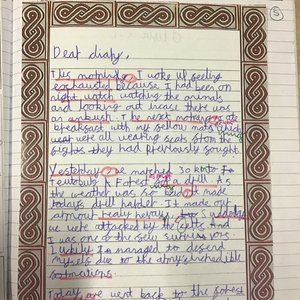 5
Dear diary,
This morning I woke up feeling
exhausted because I had been on
night watch watching the animals
and looking out incase there was
an ambush. The next morning
breakfast with my fellow mats which
were all wearing scars from the
fights they had previously fought.
Yesterday we matched 30 km to
Teutoburg Forest drill. As
the weather was so bad it made
todays drill harder. It made our
armour really heavy. Suddenly
we were attacked by the celts and
I was one of the survivors
I likely I managed to defend
myself due to the armys incredible
Today we went back to the forest